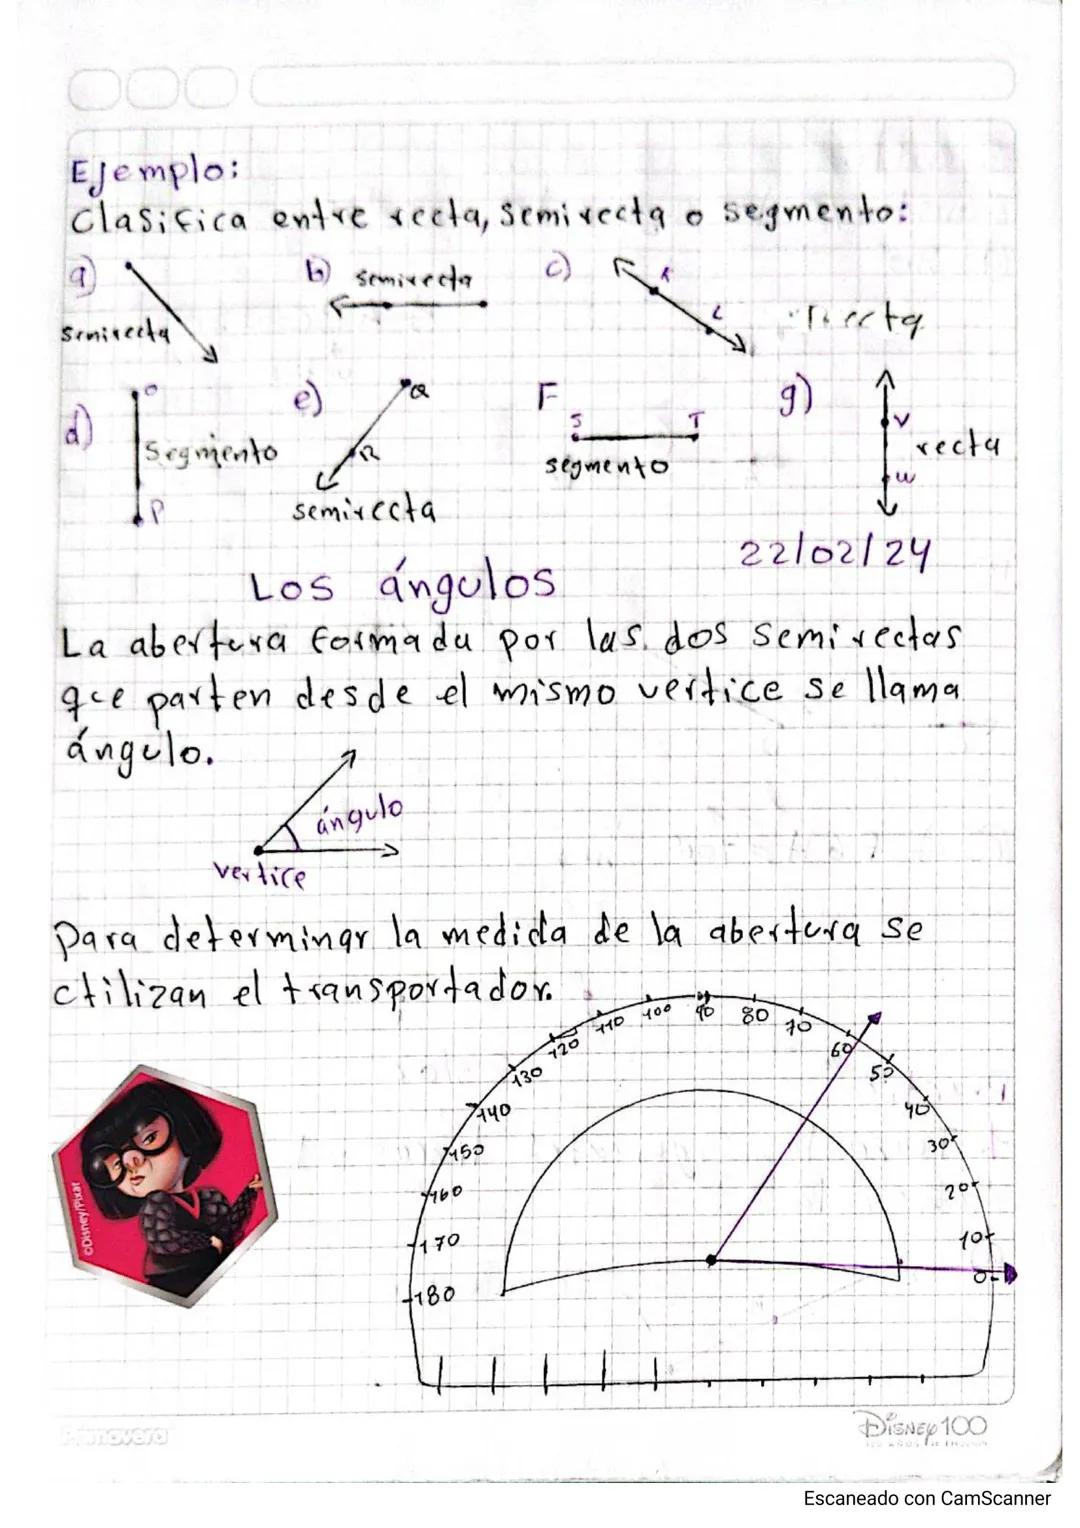 Ejemplo:
Clasifica entre recta, semirecta o segmento:
a)
semirecta
b) semirecta
c)
K
L
recta
d)
O
segmento
P
e)
Q
R
semirecta
F
S T
segmento
g)
V
recta
W
22/02/24
Los ángulos
La abertura formada por las dos semirectas
que parten desde el mismo vertice se llama
ángulo.
ángulo
vertice
Para determinar la medida de la abertura se
utilizan el transportador.
180 170 160 150 140 130 120 110 100 90 80 70 60 50 40 30 20 10 0
©Disney/Pixar
Primavera
Disney 100
Escaneado con CamScanner